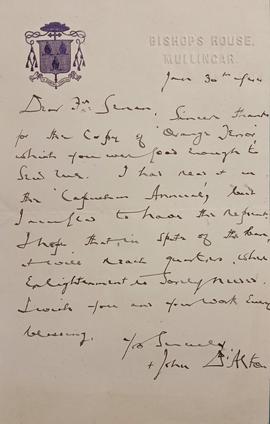 BISHOPS HOUSE,
MULLINGAR.
Jan 30th 1944
Dear Fr. Senan,
Sincere thanks
for the Copy of 'Orange Terror'
which you were good enough to
send me. I has read it in
the 'Capuchin Annual' but
I am glad to have the reprint.
I hope that, in spite of the ban,
it will reach quarters, where
Enlightenment is sorely
I wish you and your work every
blessing.
Yrs Sincerely
+ John D'Alton